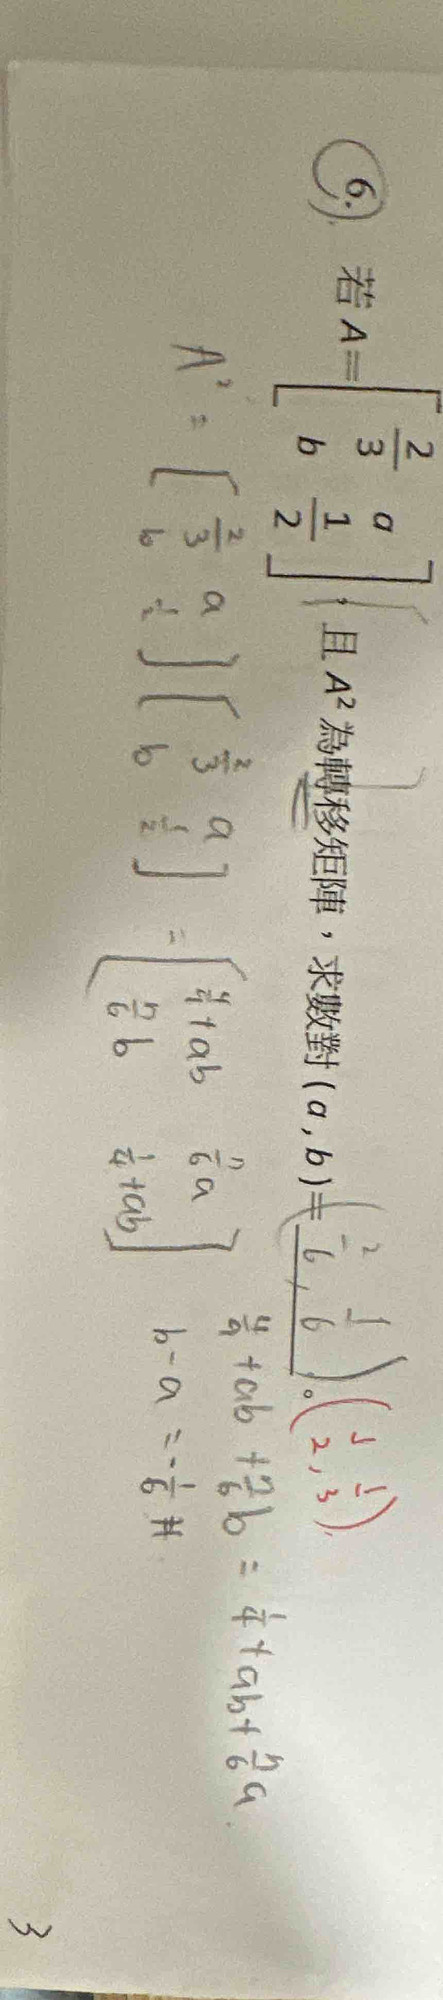 6. 若 A = [ 2/3 a ; b 1/2 ]，且 A² 為轉移矩陣，求數對 (a, b) = ( 2/6 , 1/6 )。 ( 1/2 , 1/3 ).
A² = [ 2/3 a ; b 1/2 ] [ 2/3 a ; b 1/2 ] = [ 4/9 + ab 7/6 a ; 7/6 b 1/4 + ab ]
4/9 + ab + 7/6 b = 1/4 + ab + 7/6 a.
b - a = - 1/6 #
3